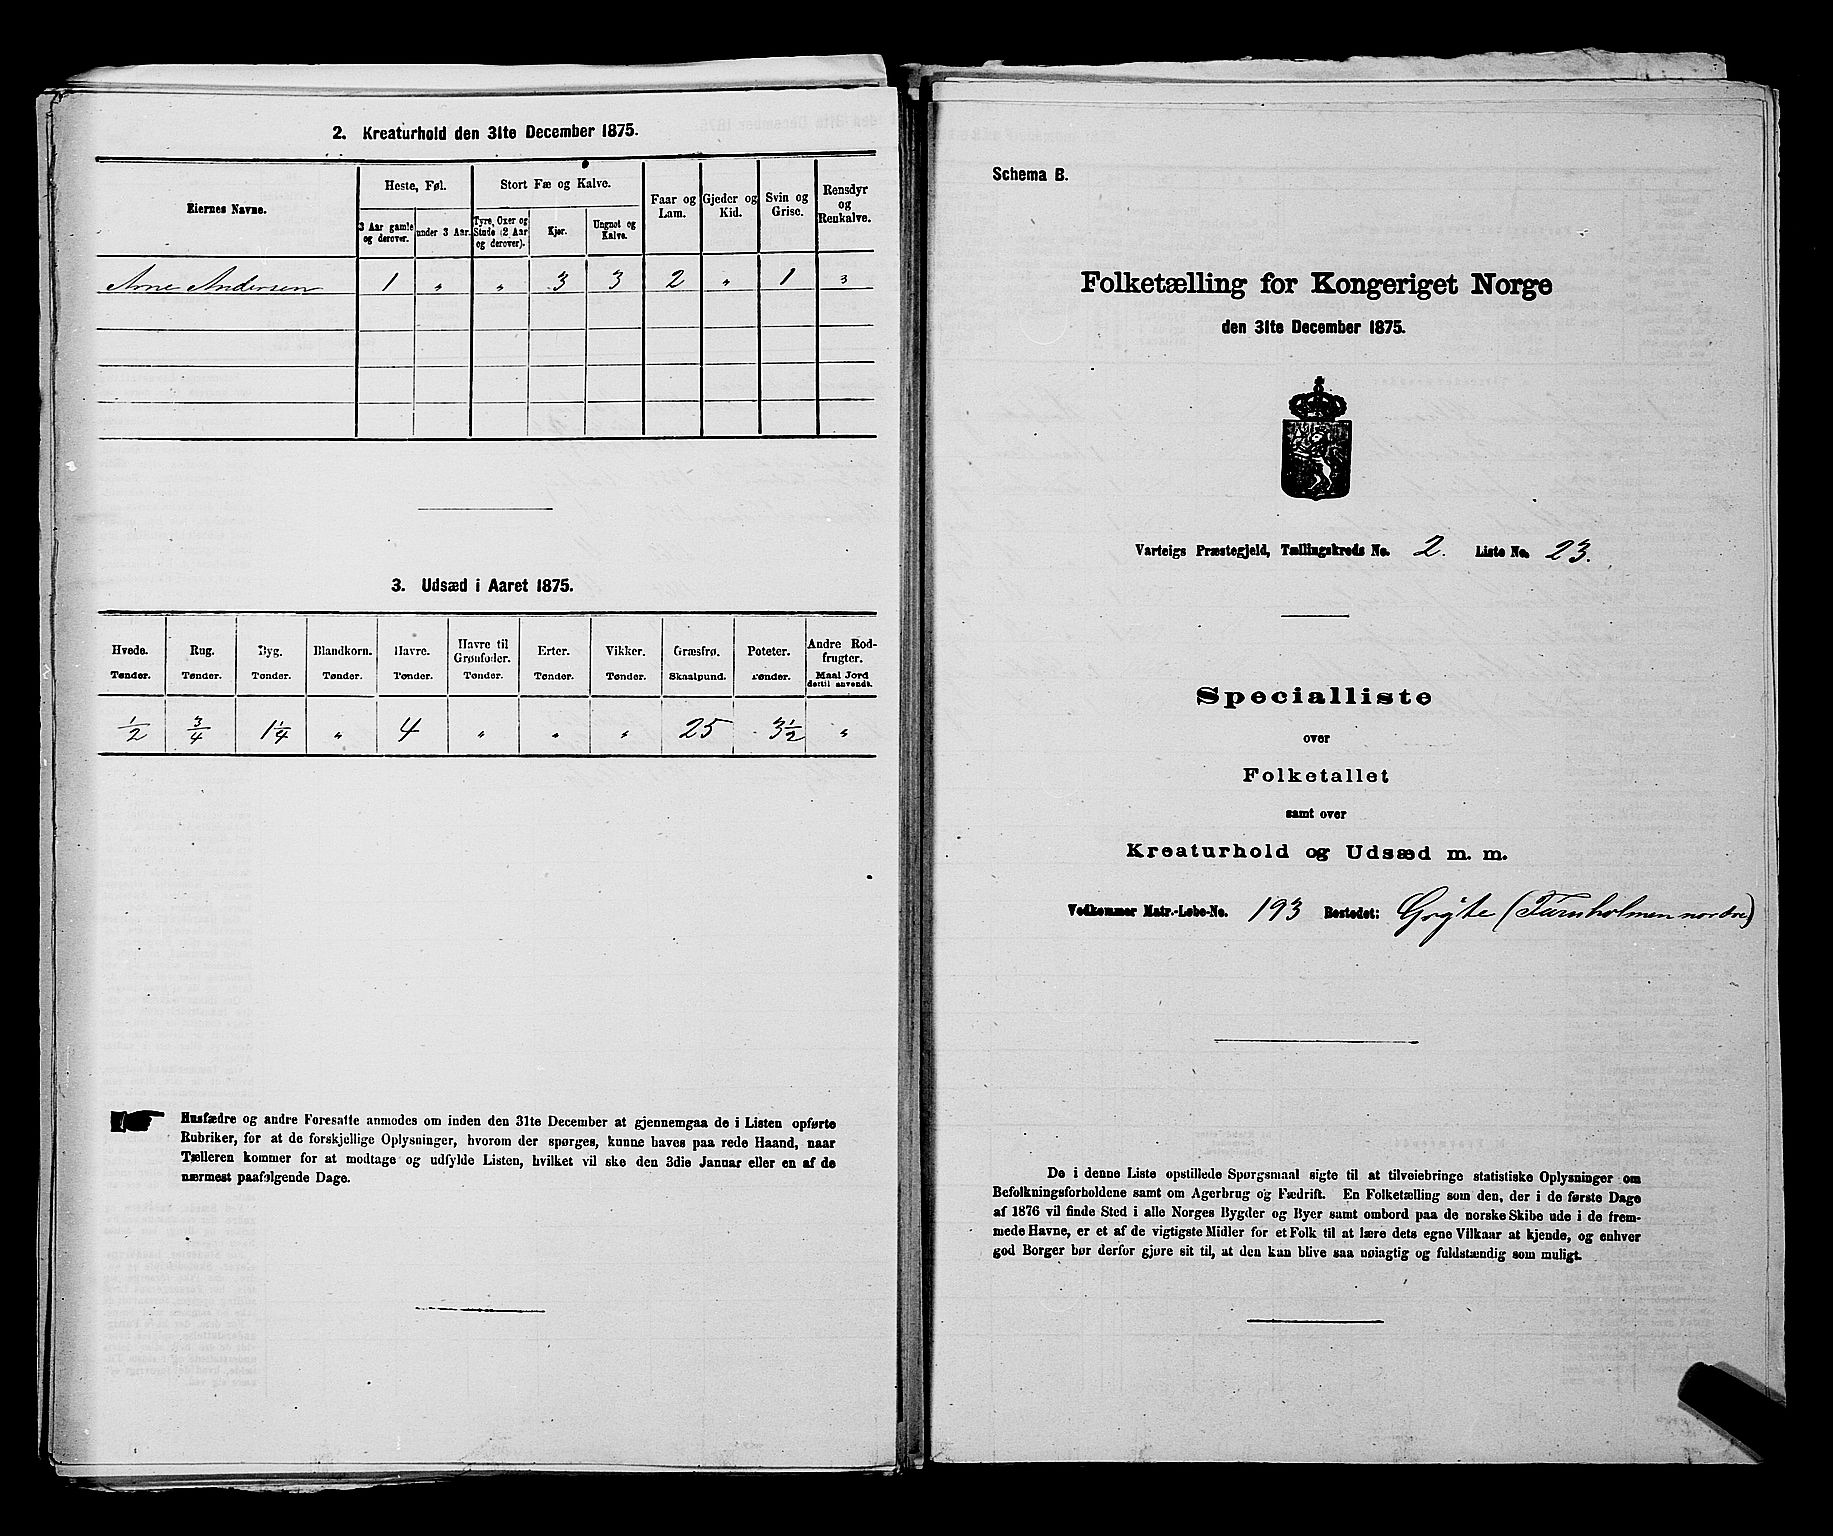 2. Kreaturhold den 31te December 1875.
Eiernes Navne.
Heste, Føl.
Stort Fæ og Kalve.
3 Aar gamle og derover.
under 3 Aar.
Tyre, Oxer og Stude (2 Aar og derover).
Kjør.
Ungnøt og Kalve.
Faar og Lam.
Gjeder og Kid.
Svin og Grise.
Rensdyr og Renkalve.
Arne Andersen 1 " " 3 3 2 " 1 "
3. Udsæd i Aaret 1875.
Hvede. Rug. Byg. Blandkorn. Havre. Havre til Grønfoder. Erter. Vikker. Græsfrø. Poteter. Andre Rodfrugter.
Tønder. Tønder. Tønder. Tønder. Tønder. Tønder. Tønder. Tønder. Skaalpund. Tønder. Maal Jord dertil anvendt.
1/2 3/4 1 1/4 " 4 " " " 25 3 1/2 "
Husfædre og andre Foresatte anmodes om inden den 31te December at gjennemgaa de i Listen opførte
Rubriker, for at de forskjellige Oplysninger, hvorom der spørges, kunne haves paa rede Haand, naar
Tælleren kommer for at modtage og udfylde Listen, hvilket vil ske den 3die Januar eller en af de
nærmest paafølgende Dage.
Schema B.
Folketælling for Kongeriget Norge
den 31te December 1875.
Varteigs Præstegjeld, Tællingskreds No. 2. Liste No. 23.
Specialliste
over
Folketallet
samt over
Kreaturhold og Udsæd m. m.
Vedkommer Matr.-Løbe-No. 193 Bostedet: Grÿte (Turnholmen nordre)
De i denne Liste opstillede Spørgsmaal sigte til at tilveiebringe statistiske Oplysninger om
Befolkningsforholdene samt om Agerbrug og Fædrift. En Folketælling som den, der i de første Dage
af 1876 vil finde Sted i alle Norges Bygder og Byer samt ombord paa de norske Skibe ude i de frem-
mede Havne, er et af de vigtigste Midler for et Folk til at lære dets egne Vilkaar at kjende, og enhver
god Borger bør derfor gjøre sit til, at den kan blive saa nøiagtig og fuldstændig som muligt.